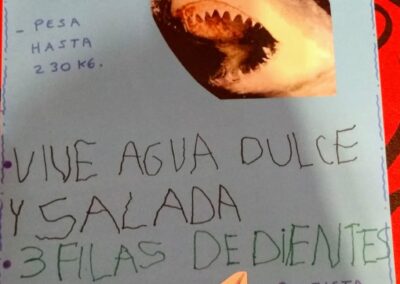 - PESA
HASTA
230 KG.
• VIVE AGUA DULCE
Y SALADA
• 3 FILAS DE DIENTES